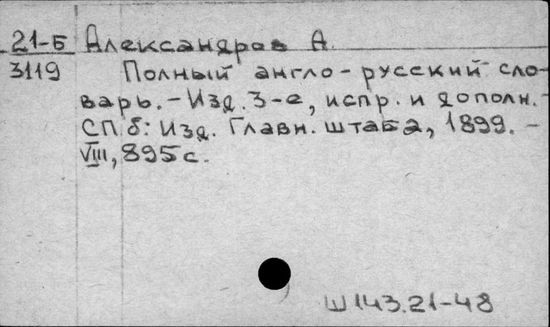 21-Б Александров А.
3119 Полный англо-русский сло-
варь.-Изд. 3-е, испр. и дополн.-
СПб: Изд. Главн. штаба, 1899. -
VIII, 895с.
Ш143.21-48